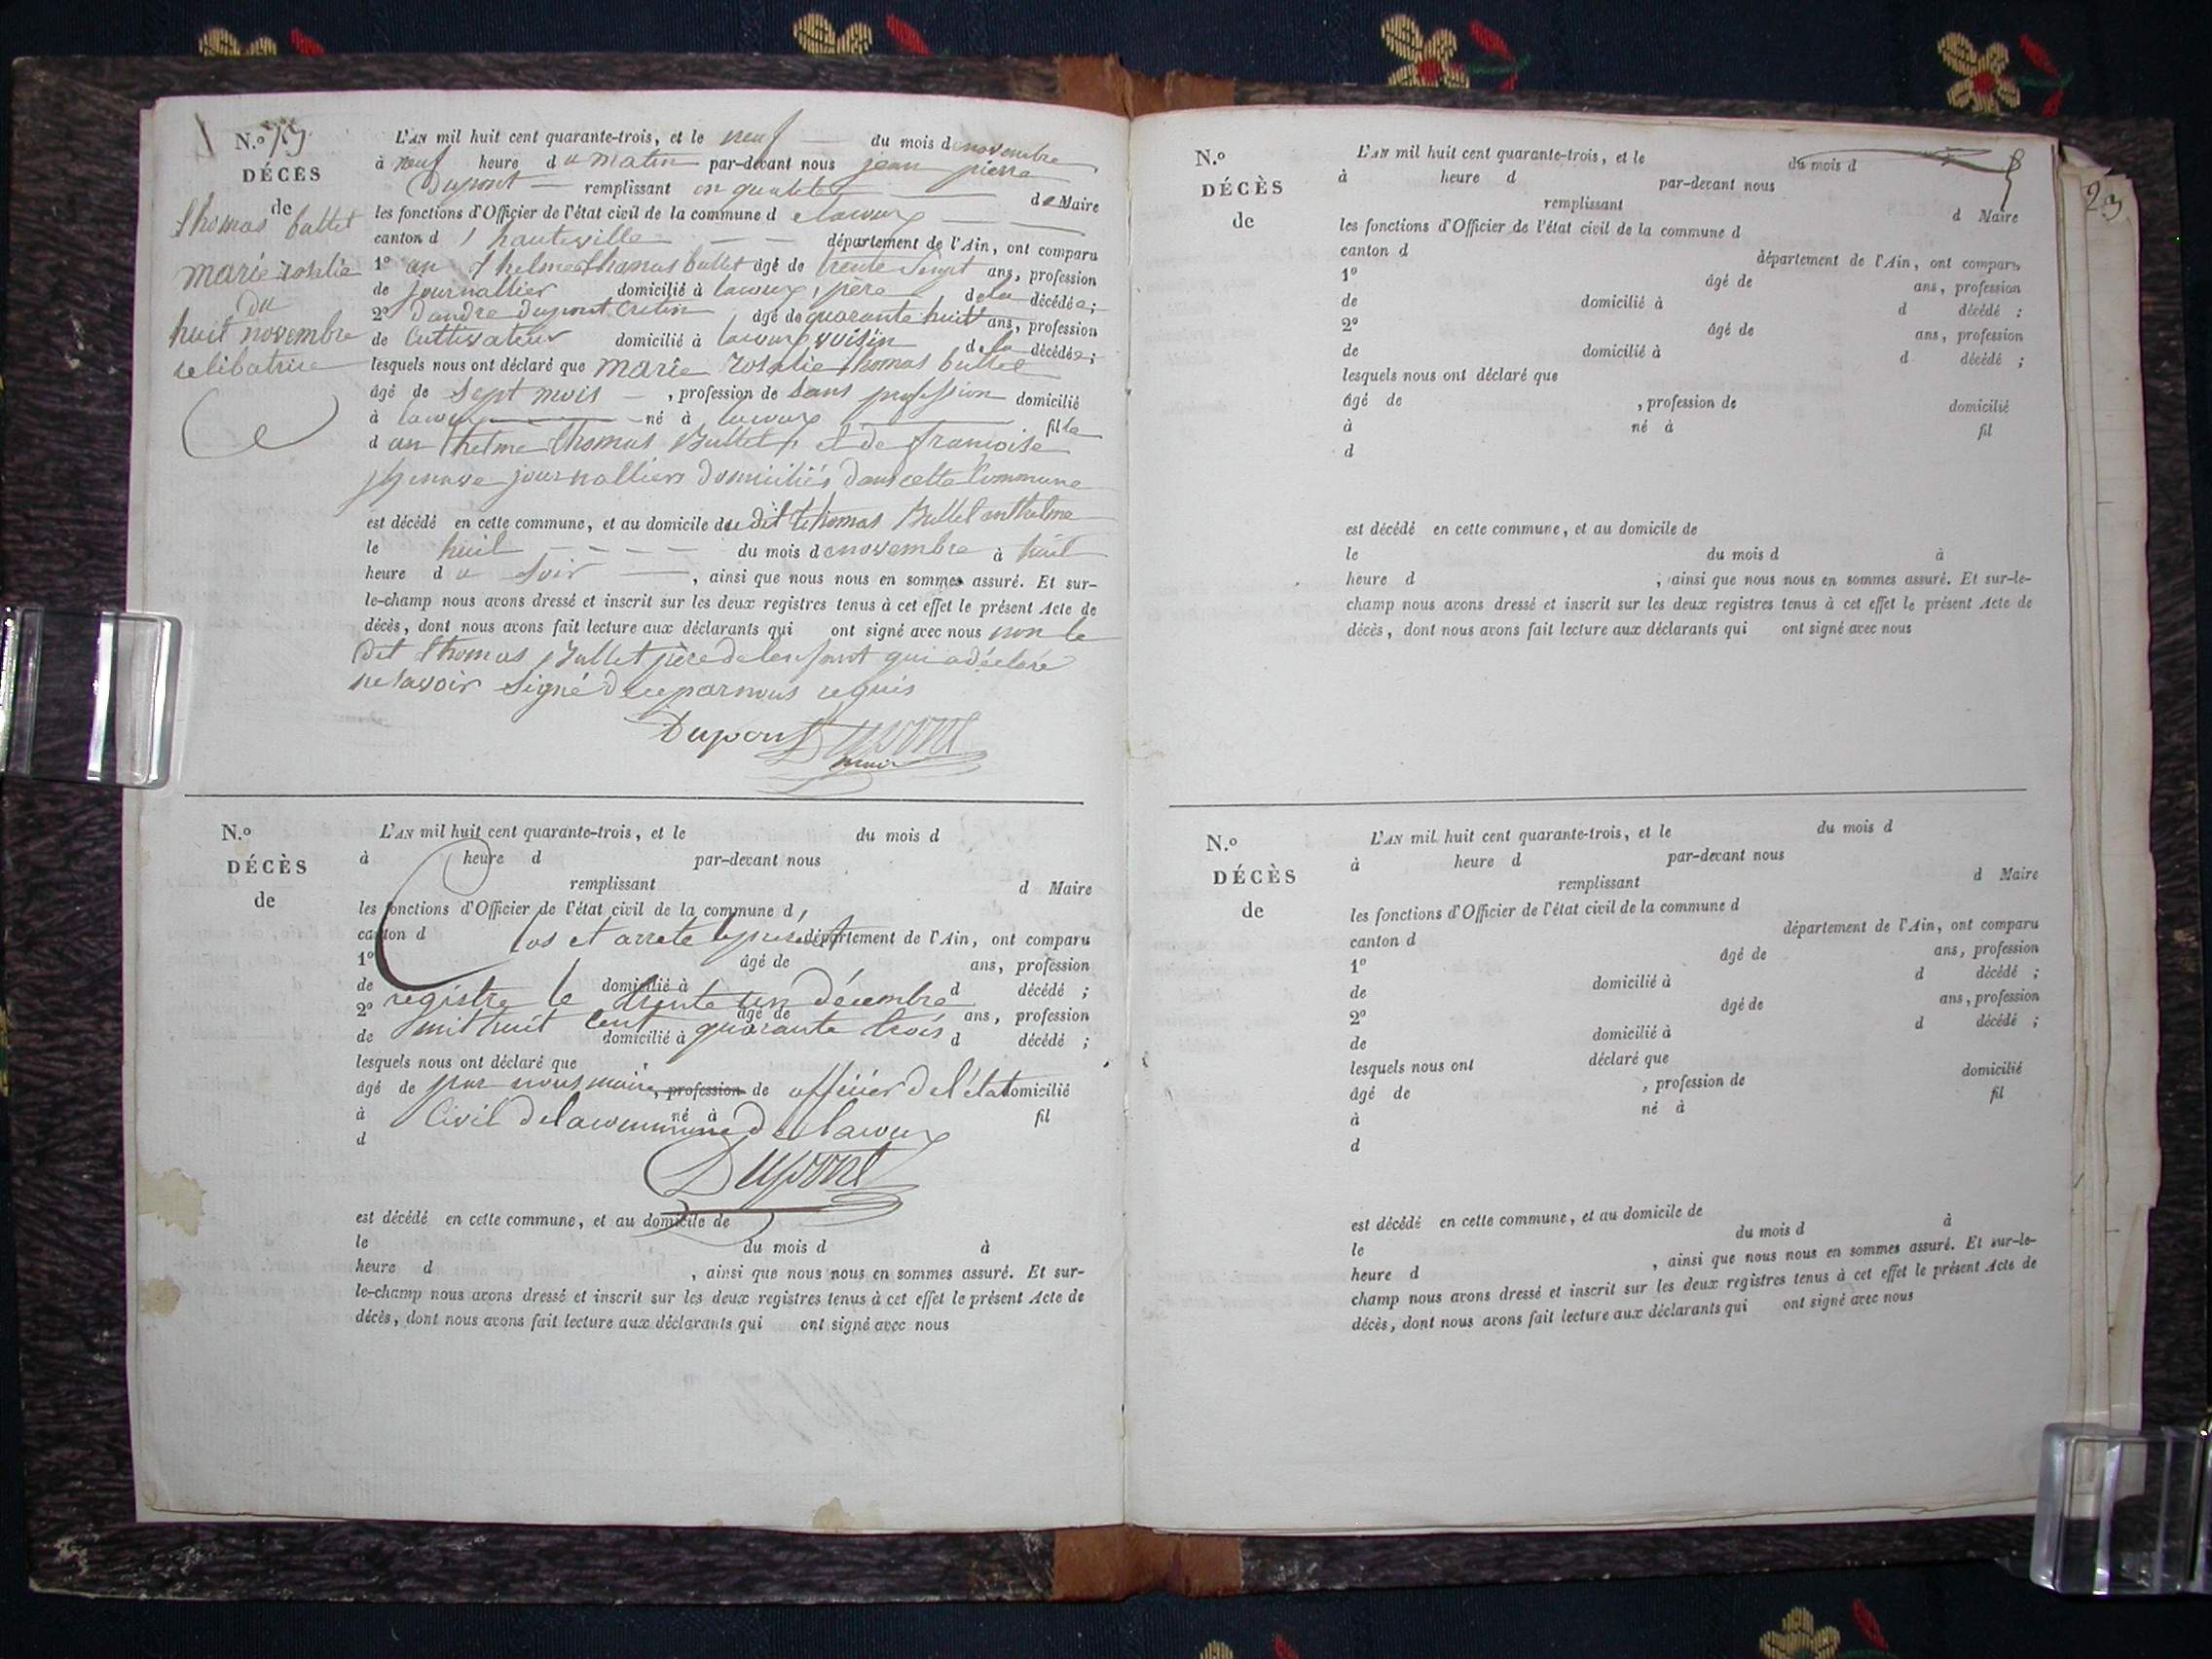 N.º 13
DÉCÈS
de
thomas bullet
marie rosalie
du
huit novembre
celibatrice
L'AN mil huit cent quarante-trois, et le neuf du mois de novembre
à neuf heure du matin par-devant nous jean pierre
Dupont remplissant en qualité de Maire
les fonctions d'Officier de l'état civil de la commune de lacoux
canton d'hauteville département de l'Ain, ont comparu
1º an thelme thomas bullet âgé de trente ans, profession
de journallier domicilié à lacoux, père de la décédée;
2º dandre dupont âgé de quarante huit ans, profession
de Cultivateur domicilié à lacoux voisin de la décédée;
lesquels nous ont déclaré que marie rosalie thomas bullet
âgé de Sept mois, profession de Sans profession domicilié
à lacoux né à lacoux fille
d an thelme thomas Bullet, et de françoise
journalliers domiciliés dans cette Commune
est décédé en cette commune, et au domicile du dit thomas Bullet anthelme
le huit du mois de novembre à huit
heure du Soir, ainsi que nous nous en sommes assuré. Et sur-
le-champ nous avons dressé et inscrit sur les deux registres tenus à cet effet le présent Acte de
décès, dont nous avons fait lecture aux déclarants qui ont signé avec nous non le
dit thomas Bullet père de lenfant qui a déclaré
ne savoir Signé de ce par nous requis
Dupont Dupont
maire
N.º
DÉCÈS
de
L'AN mil huit cent quarante-trois, et le du mois d
à heure d par-devant nous
remplissant d Maire
les fonctions d'Officier de l'état civil de la commune d
canton d département de l'Ain, ont comparu
Clos et arrete le present
1º âgé de ans, profession
de domicilié à d décédé ;
registre le trente un décembre
2º âgé de ans, profession
mil huit cent quarante trois
de domicilié à d décédé ;
lesquels nous ont déclaré que
âgé de par nous maire, profession de officier de l'état domicilié
à né à fil
Civil de la commune de lacoux
d
Dupont
est décédé en cette commune, et au domicile de
le du mois d à
heure d , ainsi que nous nous en sommes assuré. Et sur-
le-champ nous avons dressé et inscrit sur les deux registres tenus à cet effet le présent Acte de
décès, dont nous avons fait lecture aux déclarants qui ont signé avec nous
N.º
DÉCÈS
de
L'AN mil huit cent quarante-trois, et le du mois d
à heure d par-devant nous
remplissant d Maire
les fonctions d'Officier de l'état civil de la commune d
canton d département de l'Ain, ont comparu
1º âgé de ans, profession
de domicilié à d décédé :
2º âgé de ans, profession
de domicilié à d décédé ;
lesquels nous ont déclaré que
âgé de , profession de domicilié
à né à fil
d
est décédé en cette commune, et au domicile de
le du mois d à
heure d , ainsi que nous nous en sommes assuré. Et sur-le-
champ nous avons dressé et inscrit sur les deux registres tenus à cet effet le présent Acte de
décès, dont nous avons fait lecture aux déclarants qui ont signé avec nous
23
N.º
DÉCÈS
de
L'AN mil huit cent quarante-trois, et le du mois d
à heure d par-devant nous
remplissant d Maire
les fonctions d'Officier de l'état civil de la commune d
canton d département de l'Ain, ont comparu
1º âgé de ans, profession
de domicilié à d décédé ;
2º âgé de ans, profession
de domicilié à d décédé ;
lesquels nous ont déclaré que
âgé de , profession de domicilié
à né à fil
d
est décédé en cette commune, et au domicile de
le du mois d à
heure d , ainsi que nous nous en sommes assuré. Et sur-le-
champ nous avons dressé et inscrit sur les deux registres tenus à cet effet le présent Acte de
décès, dont nous avons fait lecture aux déclarants qui ont signé avec nous